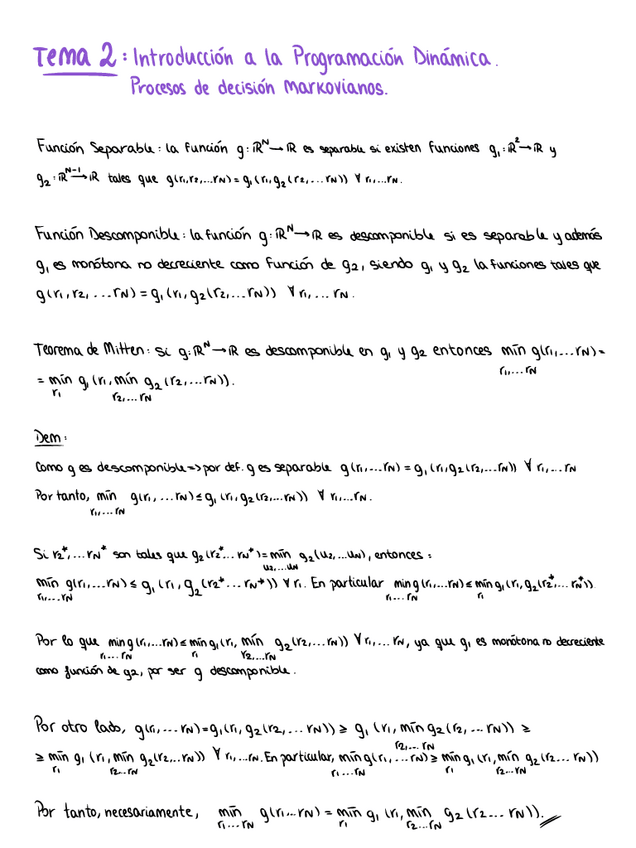 Tema 2: Introducción a la Programación Dinámica.
Procesos de decisión Markovianos.
Función Separable: la función g: ℝᴺ → ℝ es separable si existen funciones g₁: ℝ² → ℝ y
g₂: ℝᴺ⁻¹ → ℝ tales que g(r₁,r₂,...rN) = g₁(r₁,g₂(r₂,...rN)) ∀ r₁,...rN.
Función Descomponible: la función g: ℝᴺ → ℝ es descomponible si es separable y además
g₁ es monótona no decreciente como función de g₂, siendo g₁ y g₂ la funciones tales que
g(r₁,r₂,...rN) = g₁(r₁,g₂(r₂,...rN)) ∀ r₁,...rN.
Teorema de Mitten: Si g: ℝᴺ → ℝ es descomponible en g₁ y g₂ entonces mín g(r₁,...rN) =
r₁,...rN
= mín g₁(r₁, mín g₂(r₂,...rN)).
r₁ r₂,...rN
Dem:
Como g es descomponible => por def. g es separable g(r₁,...rN) = g₁(r₁,g₂(r₂,...rN)) ∀ r₁,...rN
Por tanto, mín g(r₁,...rN) ≤ g₁(r₁,g₂(r₂,...rN)) ∀ r₁,...rN.
r₁,...rN
Si r₂*,...rN* son tales que g₂(r₂*...rN*) = mín g₂(u₂,...uN), entonces:
u₂,...uN
mín g(r₁,...rN) ≤ g₁(r₁, g₂(r₂*...rN*)) ∀ r₁. En particular min g(r₁,...rN) ≤ mín g₁(r₁,g₂(r₂*,...rN*)).
r₁,...rN r₁...rN r₁
Por lo que min g(r₁,...rN) ≤ mín g₁(r₁, mín g₂(r₂,...rN)) ∀ r₁,...rN, ya que g₁ es monótona no decreciente
r₁...rN r₁ r₂,...rN
como función de g₂, por ser g descomponible.
Por otro lado, g(r₁,...rN) = g₁(r₁,g₂(r₂,...rN)) ≥ g₁(r₁, mín g₂(r₂,...rN)) ≥
r₂,...rN
≥ mín g₁(r₁, mín g₂(r₂,...rN)) ∀ r₁,...rN. En particular, mín g(r₁,...rN) ≥ mín g₁(r₁, mín g₂(r₂...rN))
r₁ r₂...rN r₁...rN r₁ r₂...rN
Por tanto, necesariamente, mín g(r₁...rN) = mín g₁(r₁, mín g₂(r₂...rN)).
r₁...rN r₁ r₂...rN